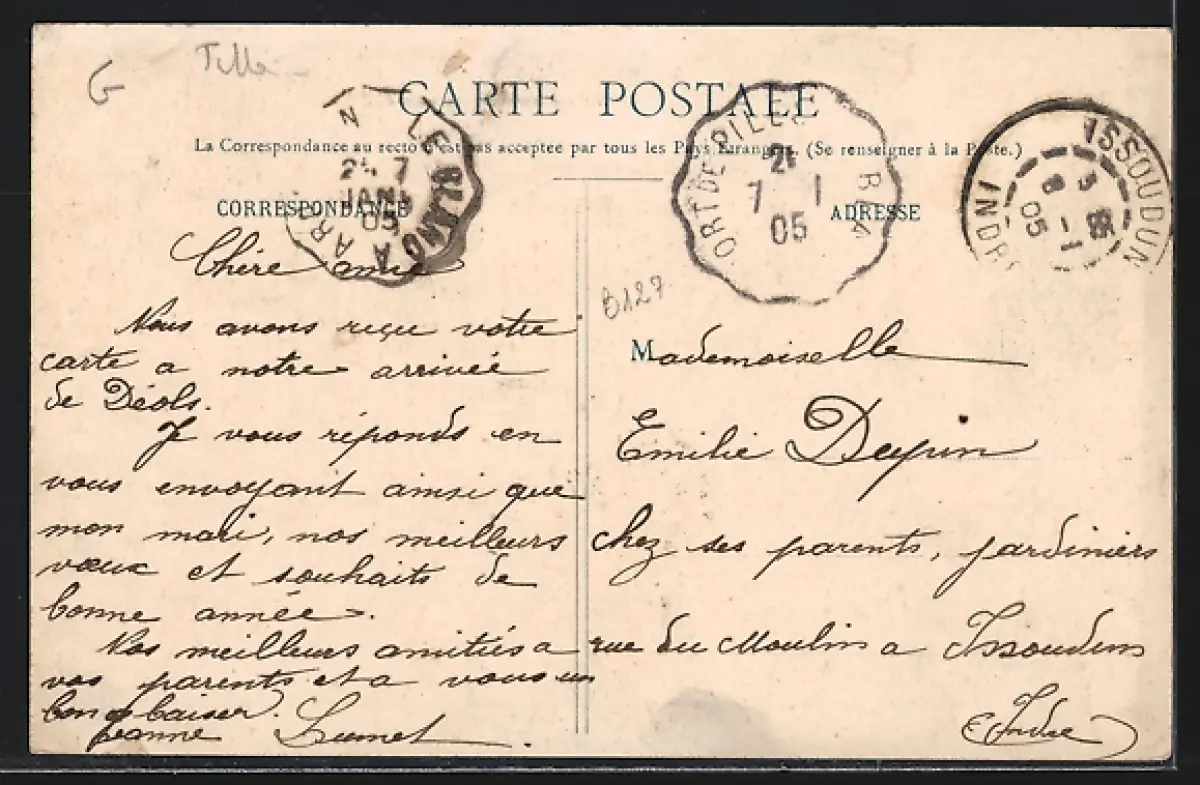 G
CARTE POSTALE
La Correspondance au recto n'est pas acceptee par tous les Pays Etrangers. (Se renseigner à la Poste.)
LE BLANC A AR
24 7
JANV
05
21
7 1
05
ISSOUDUN
INDRE
8 -1
05
CORRESPONDANCE
Chère amie
Nous avons reçu votre
carte a notre arrivée
de Déols.
Je vous réponds en
vous envoyant ainsi que
mon mari, nos meilleurs
vœux et souhaits de
bonne année.
Nos meilleurs amitiés a
vos parents et a vous un
bon baiser.
Jeanne Lumet
ADRESSE
B127
Mademoiselle
Emilie Dupin
chez ses parents, jardiniers
rue du Moulin a Issoudun
(Indre)